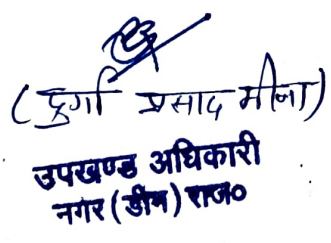 ( दुर्गा प्रसाद मीना )
उपखण्ड अधिकारी
नगर (डीग) राज०